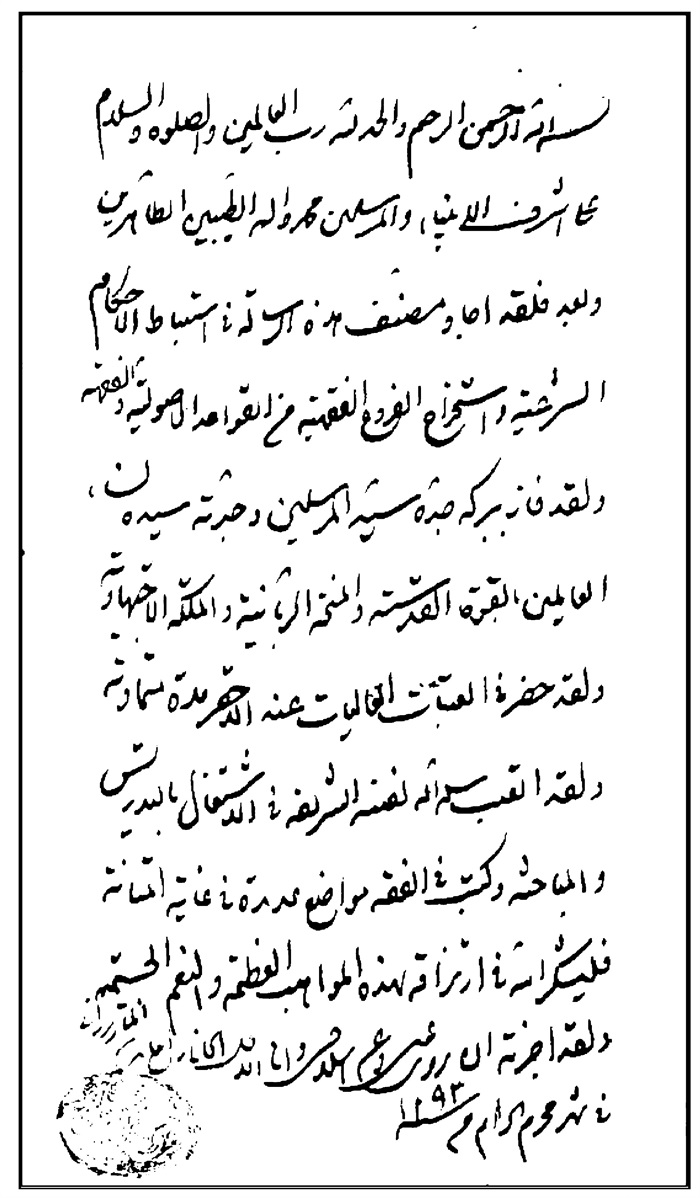 بسم الله الرحمن الرحیم والحمد لله رب العالمین والصلوة والسلام
علی اشرف الانبیاء والمرسلین محمد واله الطیبین الطاهرین
وبعد فلقد اجاد مصنف هذه الرسالة فی استنباط الاحکام
الشرعیة واستخراج الفروع الفقهیة من القواعد الاصولیة والفقهیة
ولقد فاز ببرکة جده سید المرسلین وجدته سیدة نساء
العالمین بالقوة القدسیة والمنحة الربانیة والملکة الاجتهادیة
ولقد حضر فی العتبات العالیات عند الاحقر مدة متمادیة
ولقد اتعب سلمه الله نفسه الشریفة فی الاشتغال بالتدریس
والمباحثة وکتب فی الفقه مواضع عدیدة فی غایة المتانة
فلیشکر الله فی ارتزاقه بهذه المواهب العظیمة والنعم الجسیمة
ولقد اجزته ان یروی عنی وانا الاقل الجانی المازندرانی
فی شهر محرم الحرام من سنة ١٢٩٣